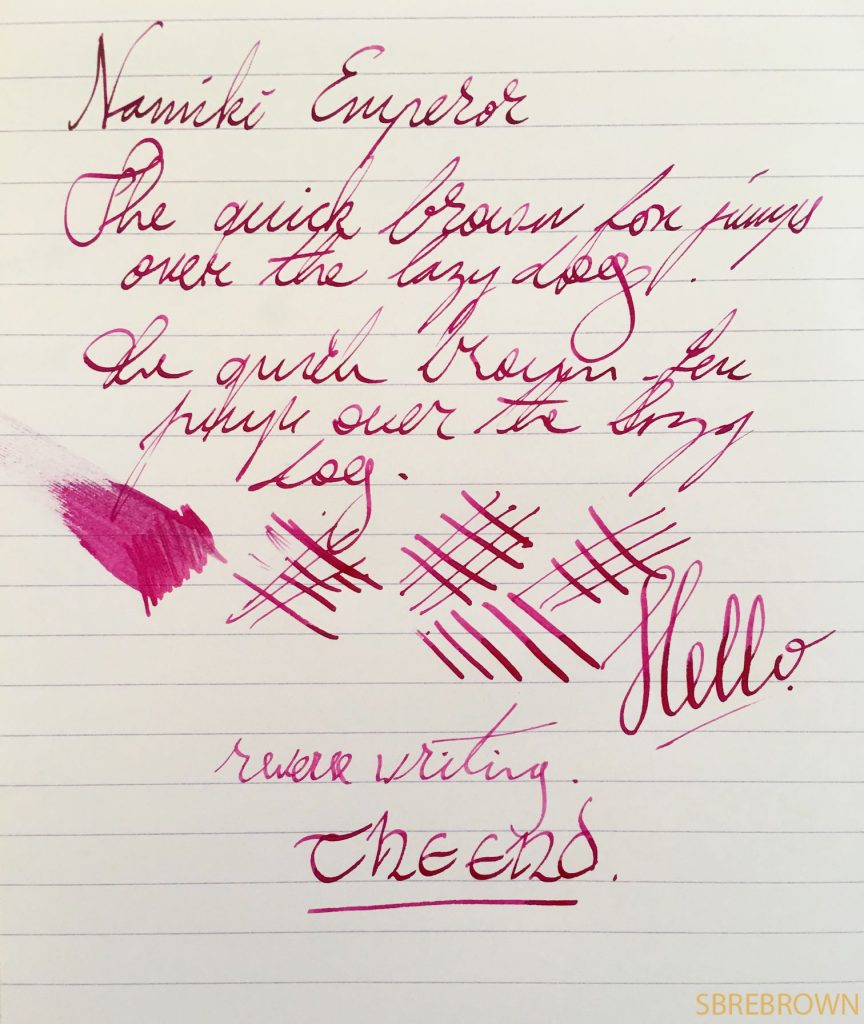 Namiki Emperor
The quick brown fox jumps
over the lazy dog.
The quick brown fox
jumps over the lazy
dog.
Hello.
reverse writing.
The End.
SBREBROWN